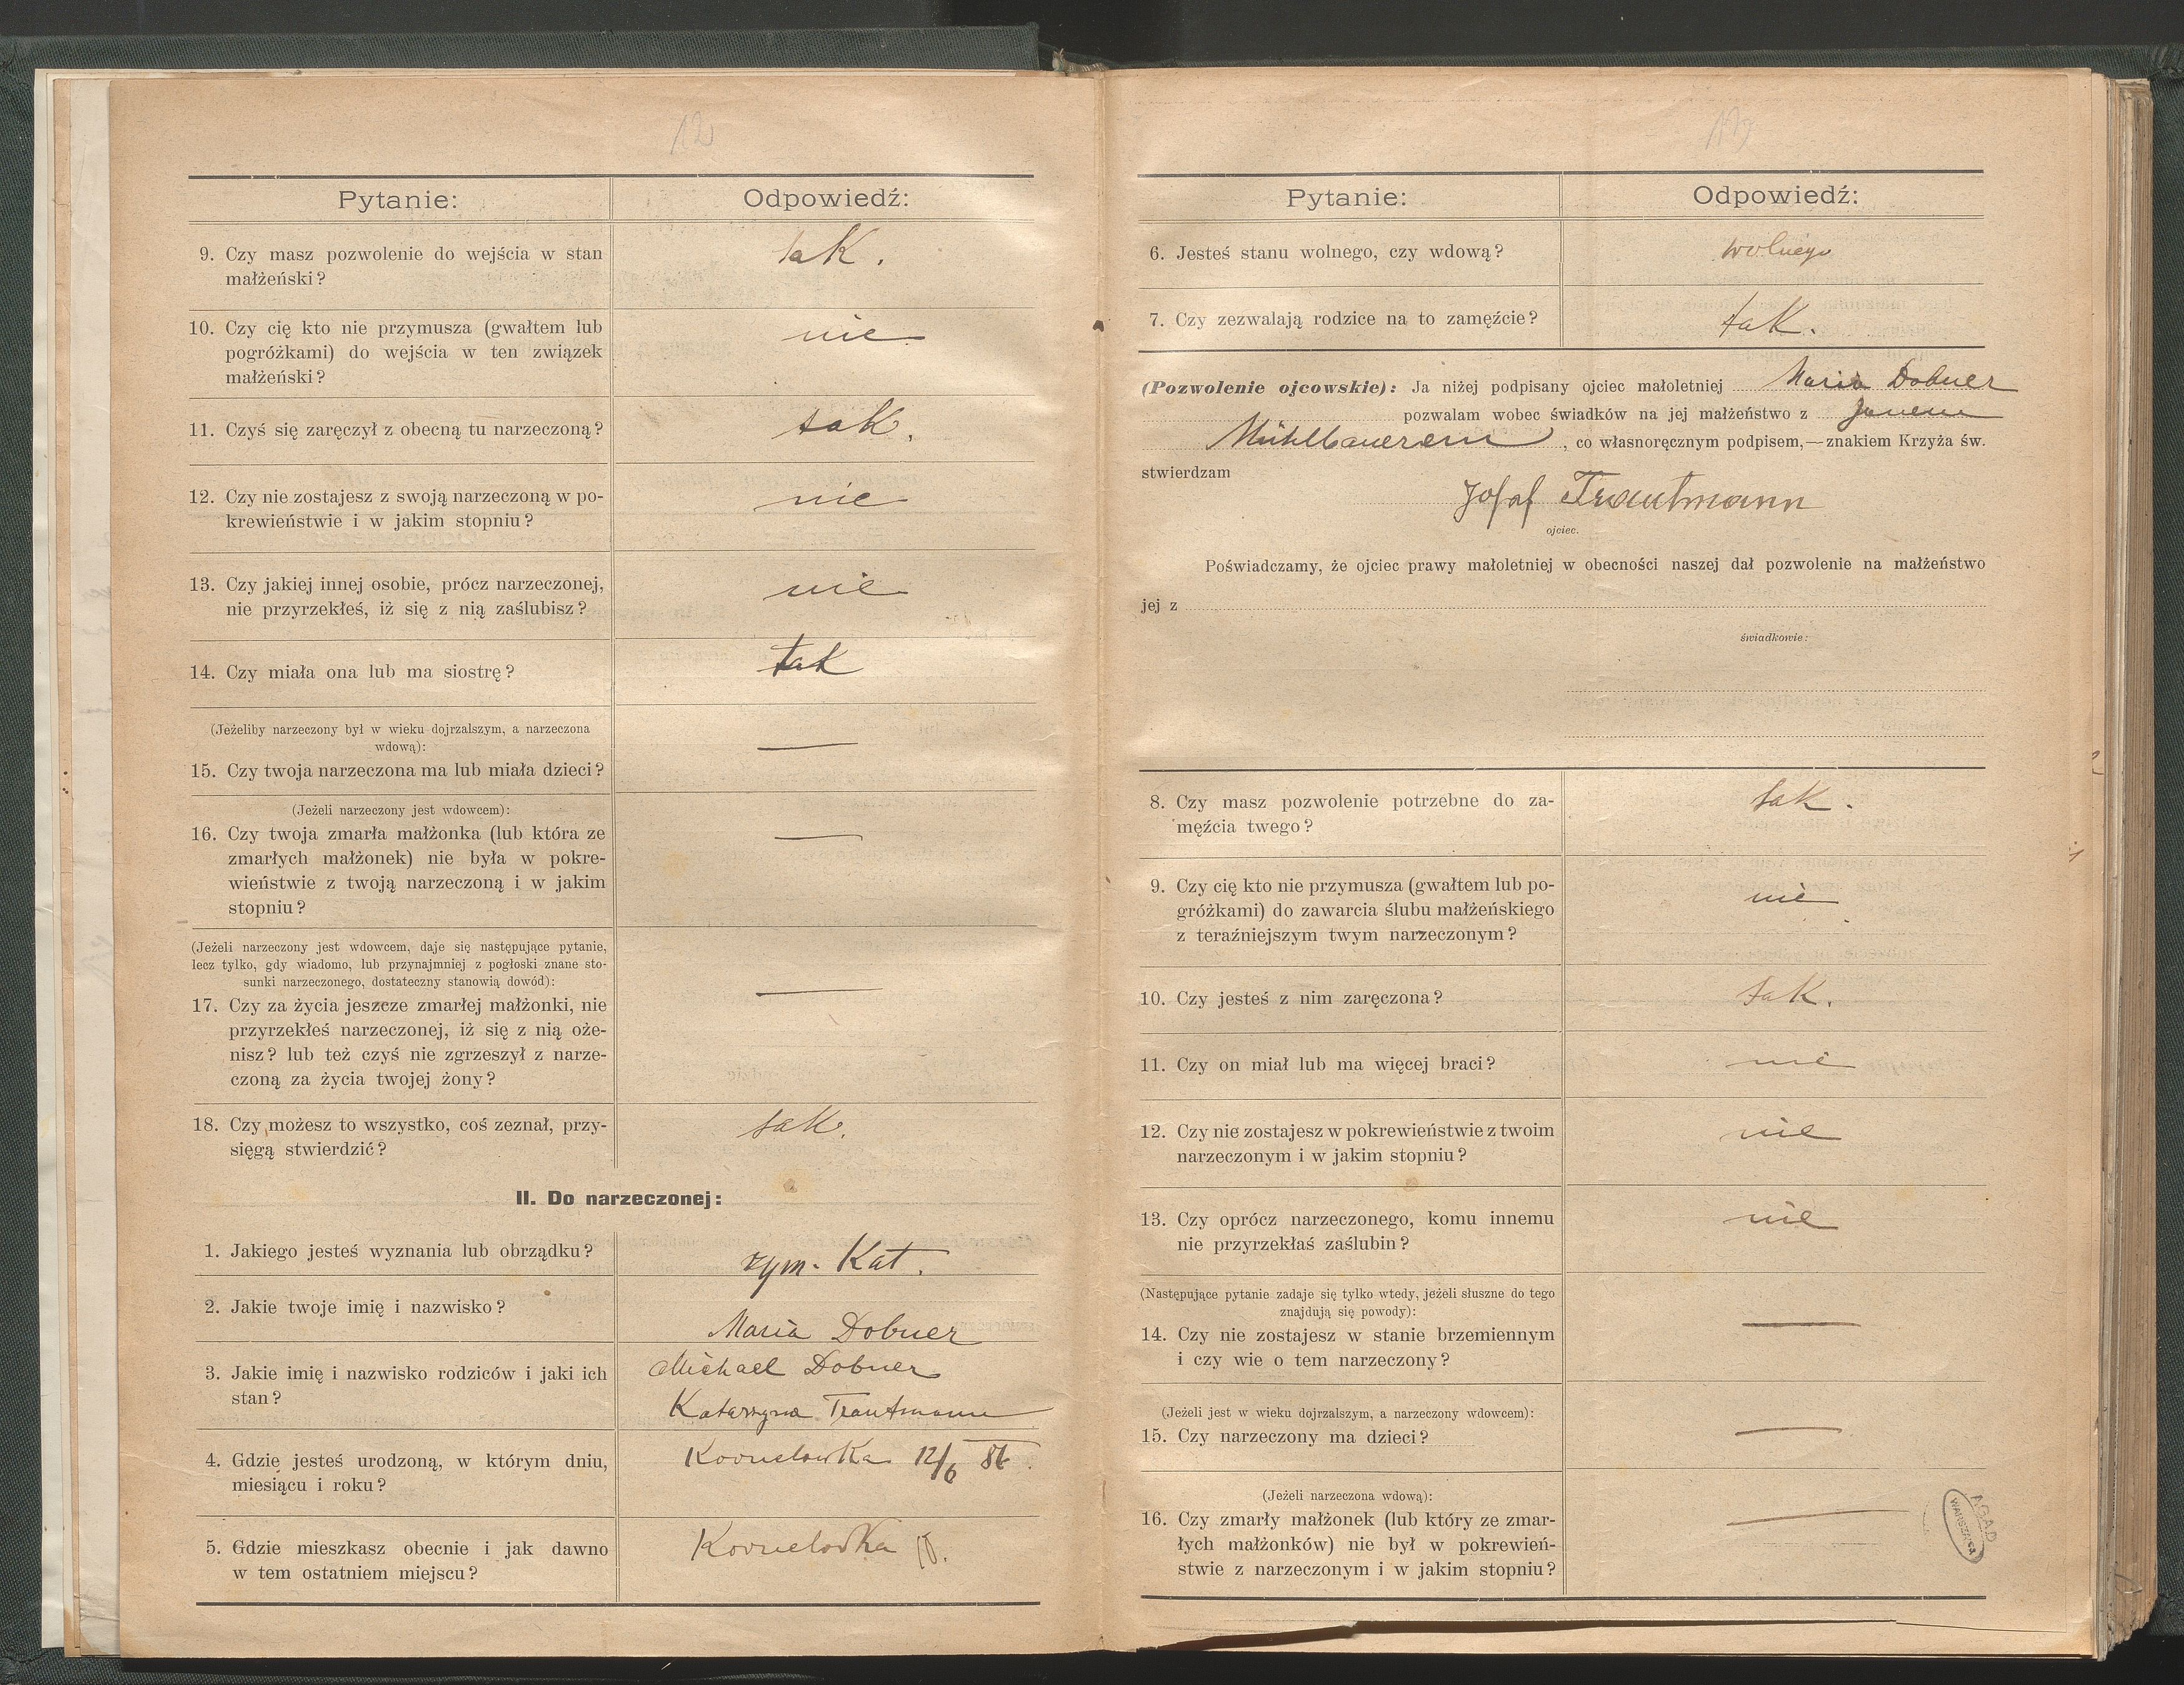 12
Pytanie:
Odpowiedź:
9. Czy masz pozwolenie do wejścia w stan
małżeński?
tak.
10. Czy cię kto nie przymusza (gwałtem lub
pogróżkami) do wejścia w ten związek
małżeński?
nie
11. Czyś się zaręczył z obecną tu narzeczoną?
tak.
12. Czy nie zostajesz z swoją narzeczoną w po-
krewieństwie i w jakim stopniu?
nie
13. Czy jakiej innej osobie, prócz narzeczonej,
nie przyrzekłeś, iż się z nią zaślubisz?
nie
14. Czy miała ona lub ma siostrę?
tak
(Jeżeliby narzeczony był w wieku dojrzalszym, a narzeczona
wdową):
15. Czy twoja narzeczona ma lub miała dzieci?
—
(Jeżeli narzeczony jest wdowcem):
16. Czy twoja zmarła małżonka (lub która ze
zmarłych małżonek) nie była w pokre-
wieństwie z twoją narzeczoną i w jakim
stopniu?
—
(Jeżeli narzeczony jest wdowcem, daje się następujące pytanie,
lecz tylko, gdy wiadomo, lub przynajmniej z pogłoski znane sto-
sunki narzeczonego, dostateczny stanowią dowód):
17. Czy za życia jeszcze zmarłej małżonki, nie
przyrzekłeś narzeczonej, iż się z nią oże-
nisz? lub też czyś nie zgrzeszył z narze-
czoną za życia twojej żony?
—
18. Czy możesz to wszystko, coś zeznał, przy-
sięgą stwierdzić?
tak.
II. Do narzeczonej:
1. Jakiego jesteś wyznania lub obrządku?
rzym. Kat.
2. Jakie twoje imię i nazwisko?
Maria Dobner
3. Jakie imię i nazwisko rodziców i jaki ich
stan?
Michael Dobner
Katarzyna Trautmann
4. Gdzie jesteś urodzoną, w którym dniu,
miesiącu i roku?
Kornelowka 12/6 86.
5. Gdzie mieszkasz obecnie i jak dawno
w tem ostatniem miejscu?
Kornelowka
Pytanie:
Odpowiedź:
6. Jesteś stanu wolnego, czy wdową?
wolnego
7. Czy zezwalają rodzice na to zamęźcie?
tak.
(Pozwolenie ojcowskie): Ja niżej podpisany ojciec małoletniej Maria Dobner
pozwalam wobec świadków na jej małżeństwo z Janem
Mühlbauerem, co własnoręcznym podpisem,—znakiem Krzyża św.
stwierdzam
Josef Trautmann
ojciec.
Poświadczamy, że ojciec prawy małoletniej w obecności naszej dał pozwolenie na małżeństwo
jej z
świadkowie:
8. Czy masz pozwolenie potrzebne do za-
męźcia twego?
tak.
9. Czy cię kto nie przymusza (gwałtem lub po-
gróżkami) do zawarcia ślubu małżeńskiego
z teraźniejszym twym narzeczonym?
nie
10. Czy jesteś z nim zaręczona?
tak.
11. Czy on miał lub ma więcej braci?
nie
12. Czy nie zostajesz w pokrewieństwie z twoim
narzeczonym i w jakim stopniu?
nie
13. Czy oprócz narzeczonego, komu innemu
nie przyrzekłaś zaślubin?
nie
(Następujące pytanie zadaje się tylko wtedy, jeżeli słuszne do tego
znajdują się powody):
14. Czy nie zostajesz w stanie brzemiennym
i czy wie o tem narzeczony?
—
(Jeżeli jest w wieku dojrzalszym, a narzeczony wdowcem):
15. Czy narzeczony ma dzieci?
—
(Jeżeli narzeczona wdową):
16. Czy zmarły małżonek (lub który ze zmar-
łych małżonków) nie był w pokrewień-
stwie z narzeczonym i w jakim stopniu?
—
A.G.A.D.
WARSZAWA